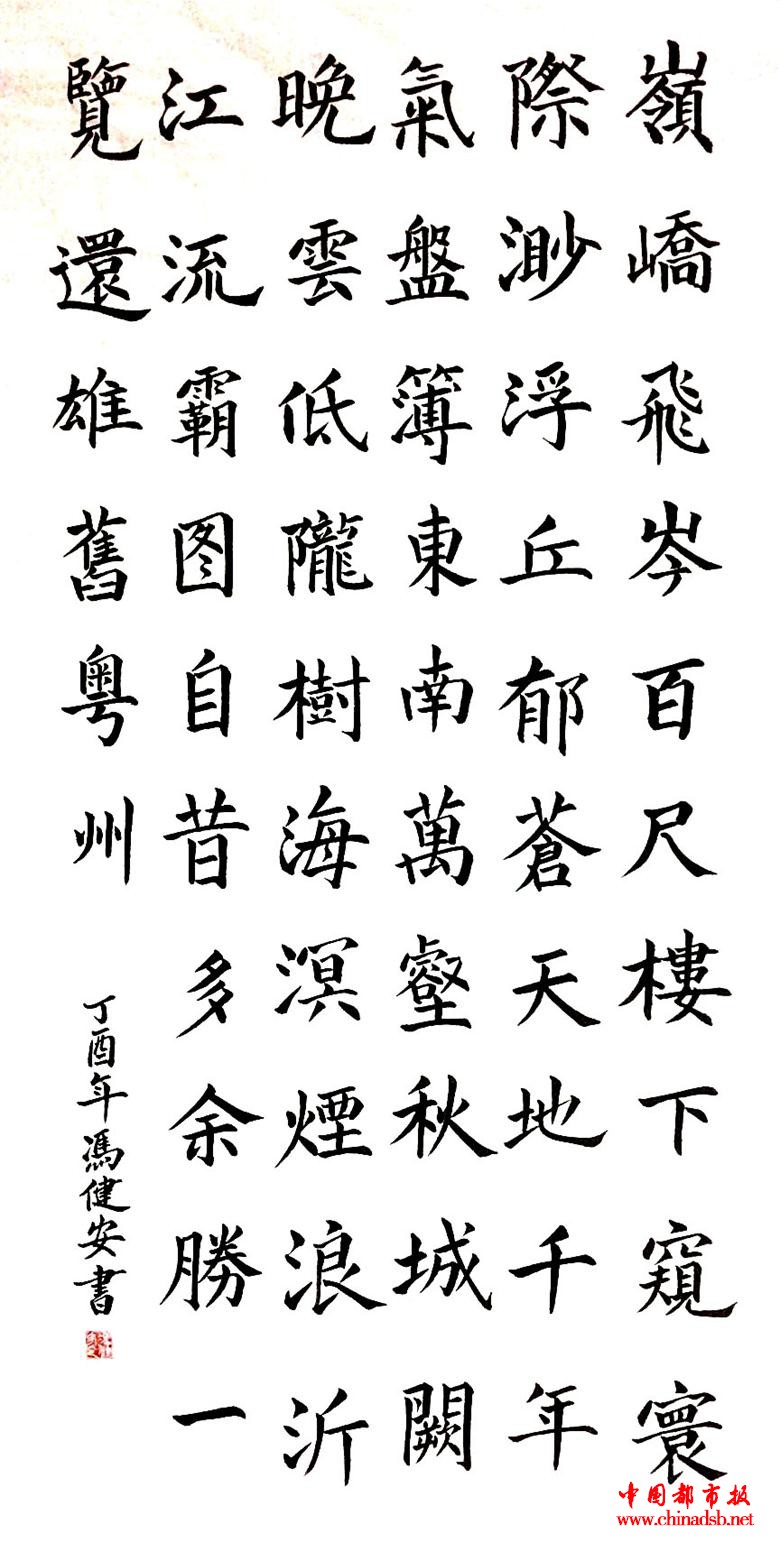 嶺嶠飛岑百尺樓下窺寰
際渺浮丘郁蒼天地千年
氣盤簿東南萬壑秋城闕
晚雲低隴樹海溟煙浪沂
江流霸图自昔多余勝一
覽還雄舊粤州
丁酉年馮健安書
中国都市报
www.chinadsb.net